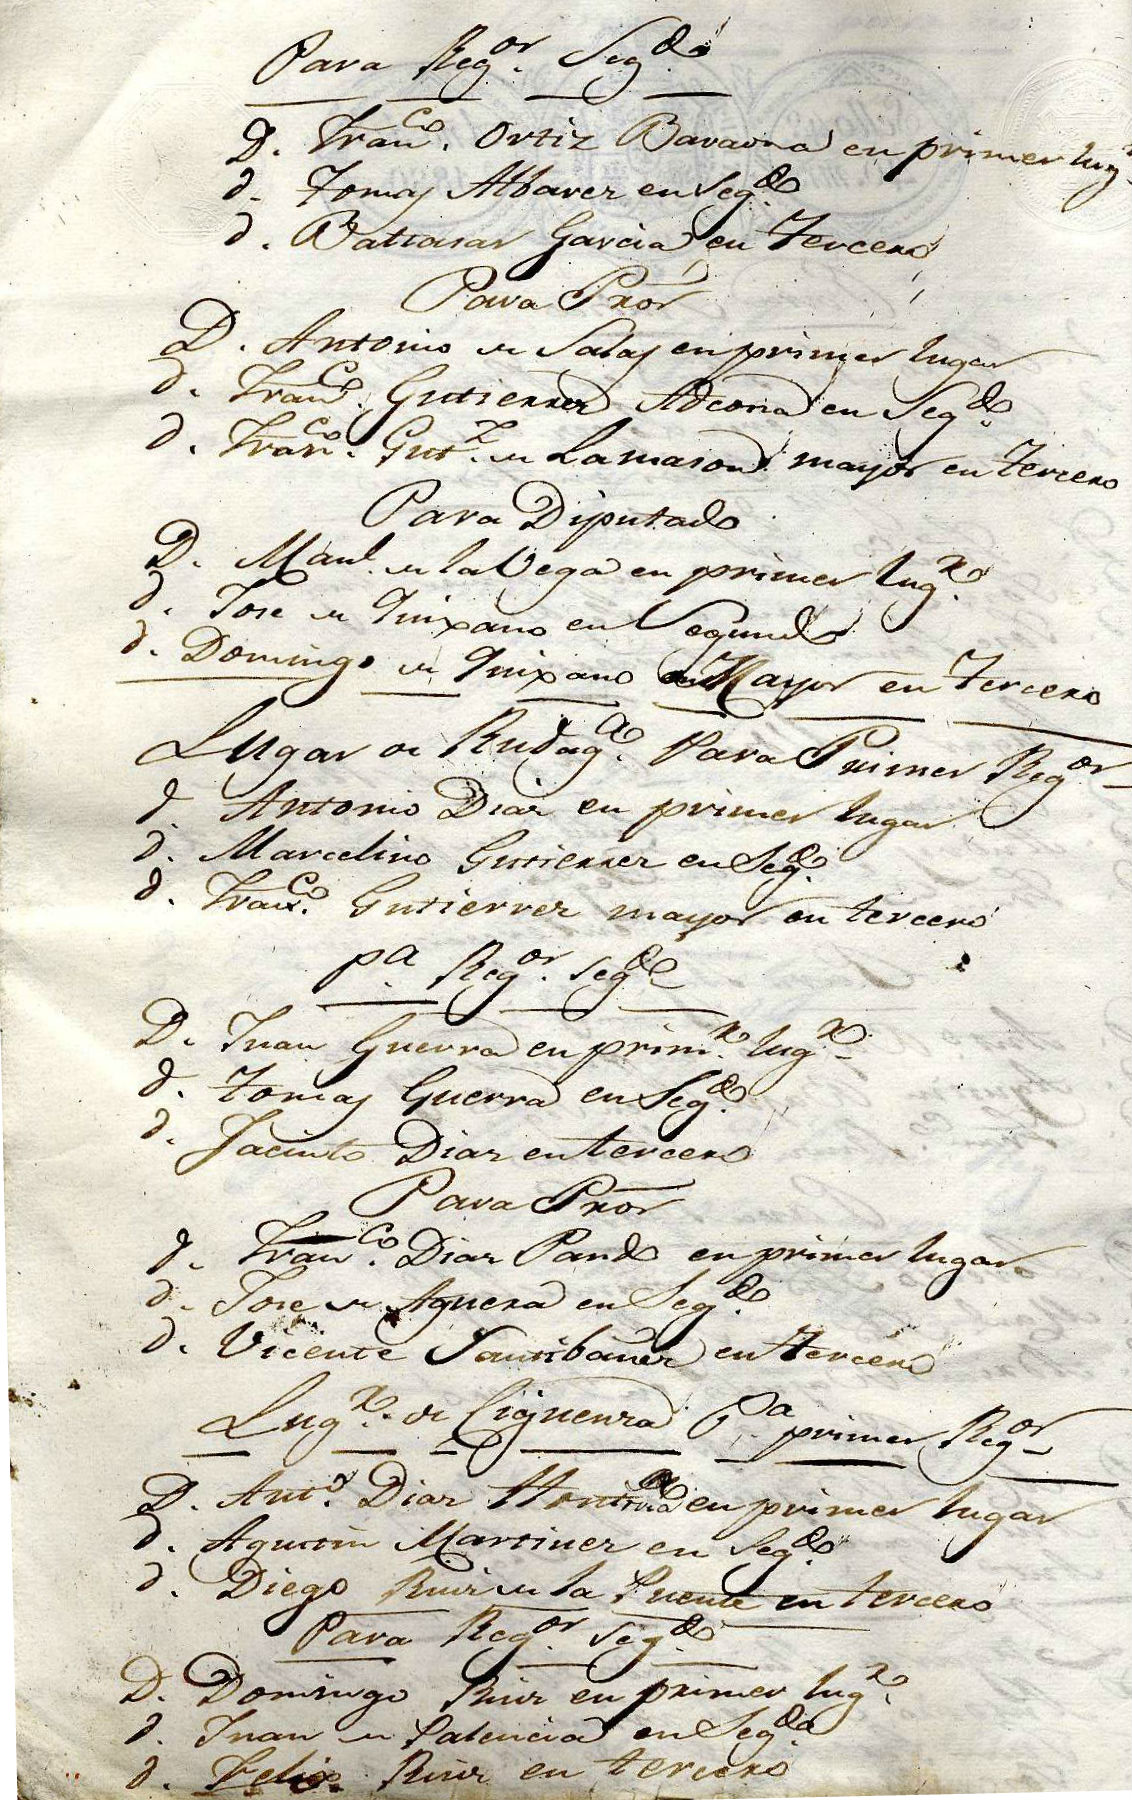 Para Reg.or Seg.do
D. Fran.co Ortiz Baraona en primer lug.r
d. Tomas Albarez en Seg.do
d. Baltasar Garcia en tercero
Para Pror
D. Antonio de Salas en primer lugar
d. Fran.co Gutierrez Adeona en Seg.do
d. Fran.co Gut.z de Lamason mayor en tercero
Para Diputado
D. Man.l de la Vega en primer lug.r
d. Jose de Quixano en Segundo
d. Domingo de Quixano Mayor en tercero
Lugar de Rudag.a Para Primer Reg.or
d. Antonio Diaz en primer lugar
d. Marcelino Gutierrez en Seg.do
d. Fran.co Gutierrez mayor en tercero
p.a Reg.or Seg.do
D. Juan Guerra en prim.r lug.r
d. Tomas Guerra en Seg.do
d. Jacinto Diaz en tercero
Para Pror
d. Fran.co Diaz Pando en primer lugar
d. Jose de Aguera en Seg.do
d. Vicente Santibañez en tercero
Lug.r de Ciguenza P.a primer Reg.or
D. Ant.o Diaz en primer lugar
d. Agustin Martinez en Seg.do
d. Diego Ruiz de la Puente en tercero
Para Reg.or Seg.do
D. Domingo Ruiz en primer lug.r
d. Juan de Palencia en Seg.do
d. Felix Ruiz en tercero